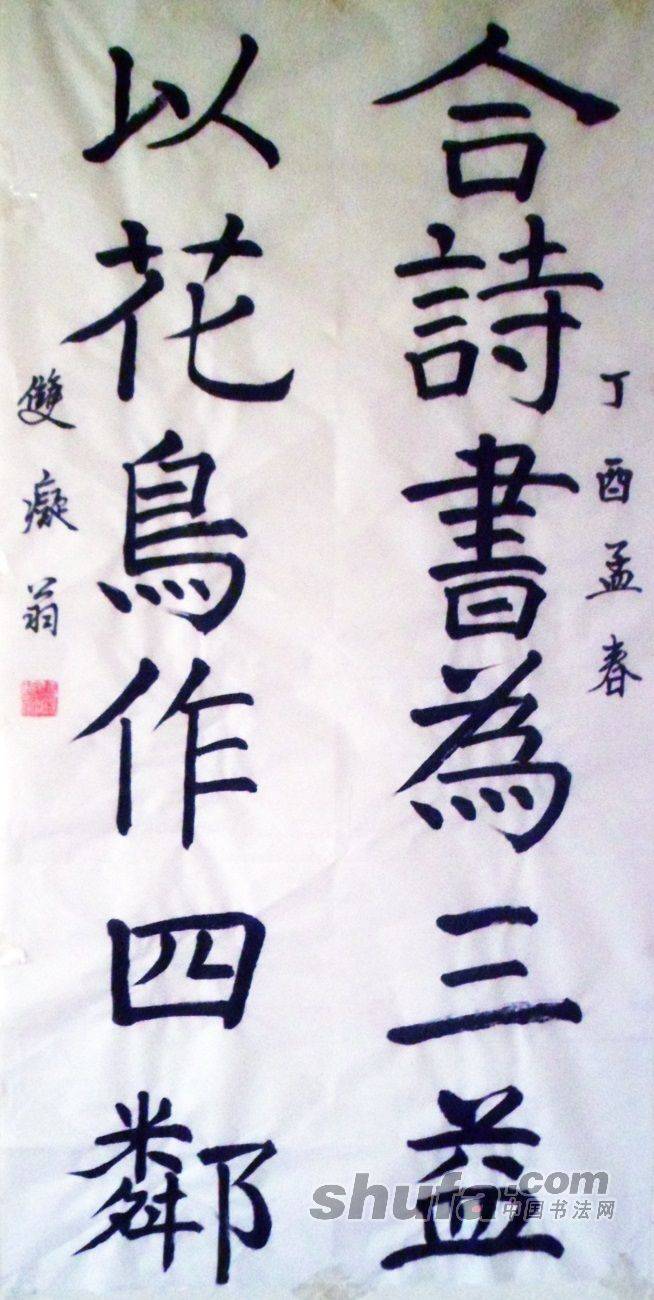 丁酉孟春
合詩書為三益
以花鳥作四鄰
雙癡翁
shufa.com
中国书法网